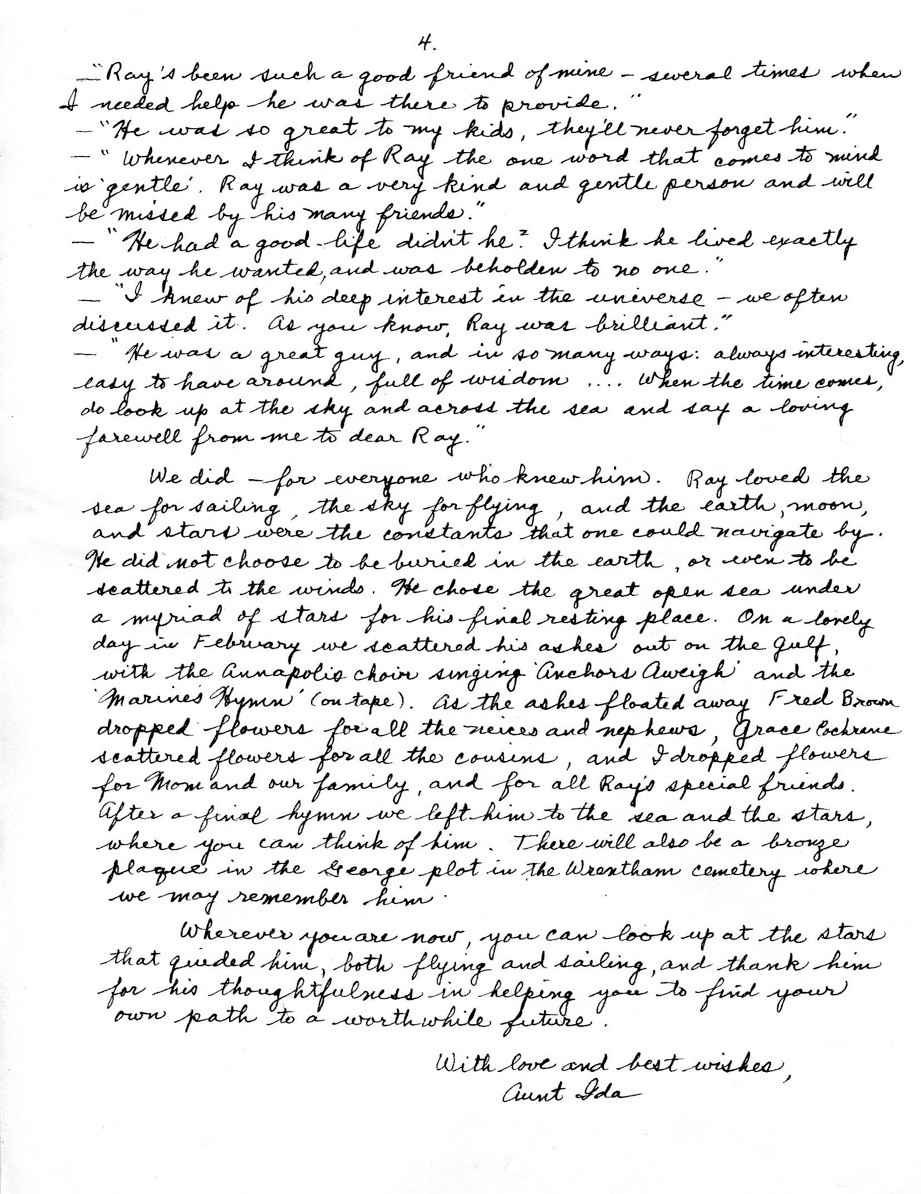 4.
—"Ray's been such a good friend of mine – several times when
I needed help he was there to provide."
—"He was so great to my kids, they'll never forget him."
—"Whenever I think of Ray the one word that comes to mind
is 'gentle'. Ray was a very kind and gentle person and will
be missed by his many friends."
—"He had a good life didn't he? I think he lived exactly
the way he wanted, and was beholden to no one."
—"I knew of his deep interest in the universe – we often
discussed it. As you know, Ray was brilliant."
—"He was a great guy, and in so many ways: always interesting,
easy to have around, full of wisdom .... When the time comes,
do look up at the sky and across the sea and say a loving
farewell from me to dear Ray."
We did – for everyone who knew him. Ray loved the
sea for sailing, the sky for flying, and the earth, moon,
and stars were the constants that one could navigate by.
He did not choose to be buried in the earth, or even to be
scattered to the winds. He chose the great open sea under
a myriad of stars for his final resting place. On a lovely
day in February we scattered his ashes out on the Gulf,
with the Annapolis choir singing 'Anchors Aweigh' and the
'Marine's Hymn' (on tape). As the ashes floated away Fred Brown
dropped flowers for all the neices and nephews, Grace Cochrane
scattered flowers for all the cousins, and I dropped flowers
for Mom and our family, and for all Ray's special friends.
After a final hymn we left him to the sea and the stars,
where you can think of him. There will also be a bronze
plaque in the George plot in the Wrentham cemetery where
we may remember him.
Wherever you are now, you can look up at the stars
that guided him, both flying and sailing, and thank him
for his thoughtfulness in helping you to find your
own path to a worthwhile future.
With love and best wishes,
Aunt Ida